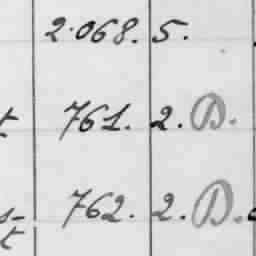 2.068. 5.
t 761. 2. D.
762. 2. D.
st